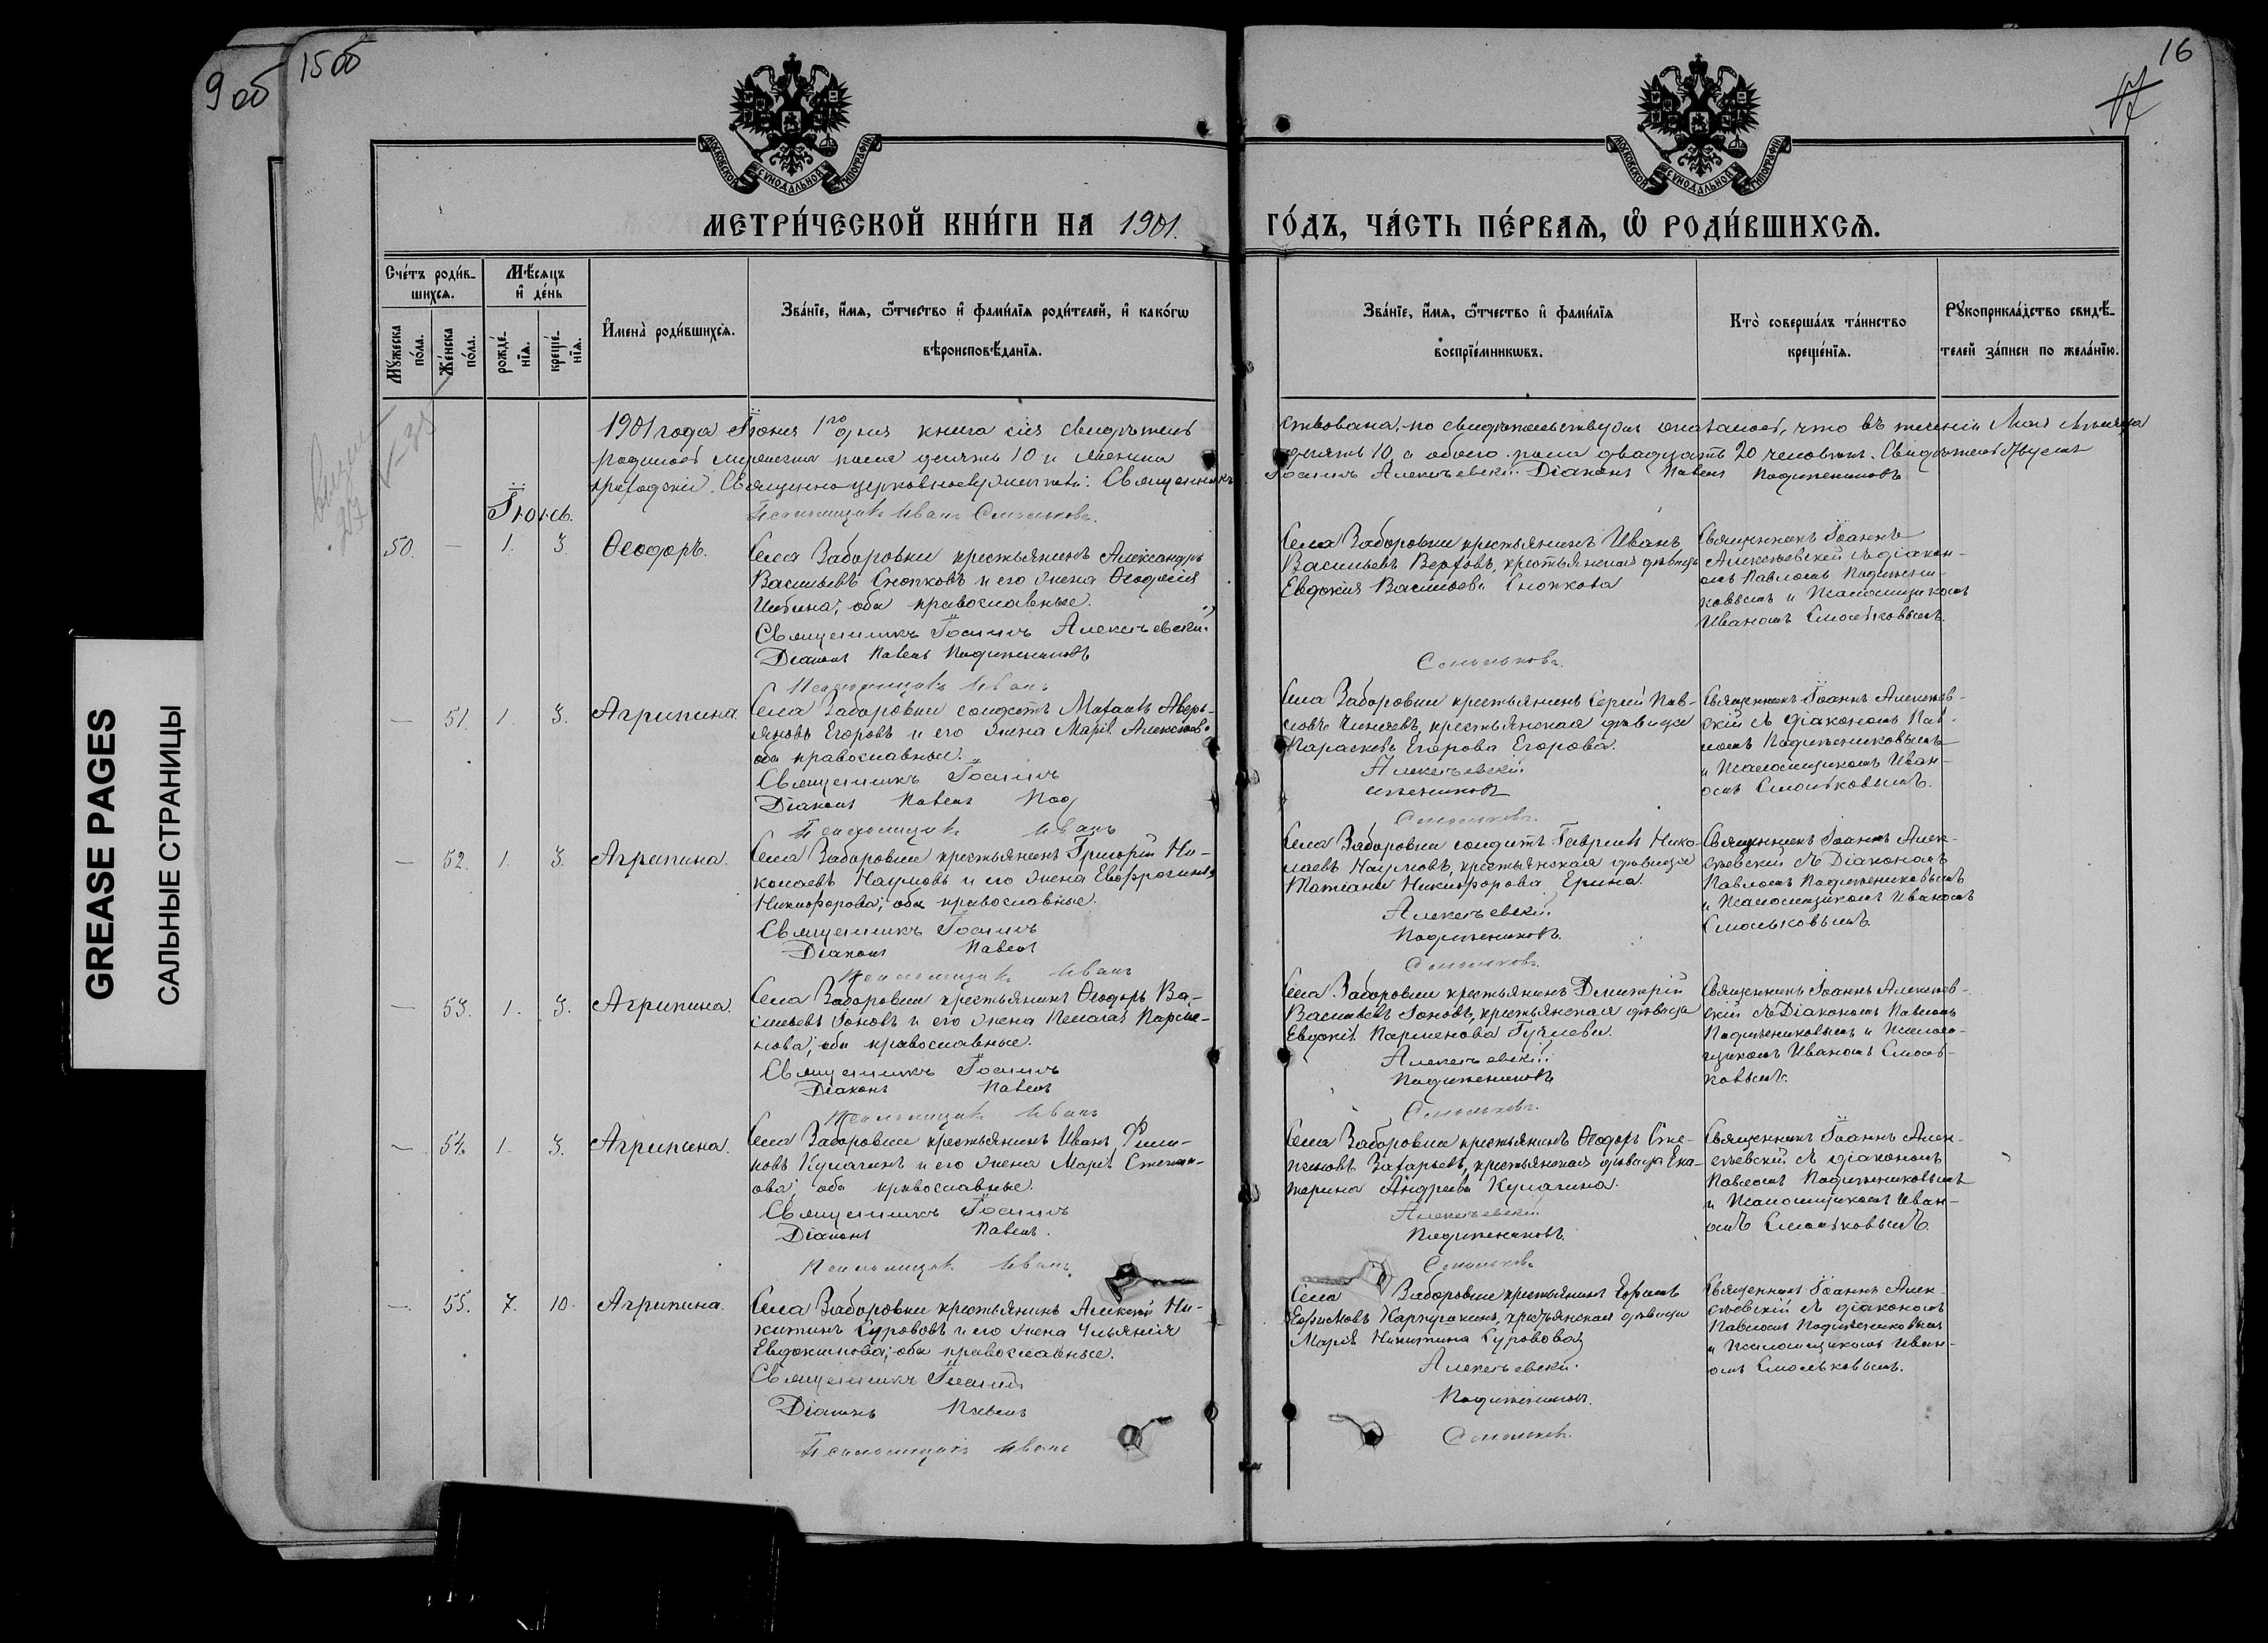 9 об
15 об
16
17
GREASE PAGES
САЛЬНЫЕ СТРАНИЦЫ
МОСКОВСКОЙ СѴНОДАЛЬНОЙ ТИПОГРАФІИ
МОСКОВСКОЙ СѴНОДАЛЬНОЙ ТИПОГРАФІИ
МЕТРИ́ЧЕСКОЙ КНИ́ГИ НА 1901. ГО́ДЪ, ЧА́СТЬ ПЕ́РВАЯ, Ѡ РОДИ́ВШИХСЯ.
Сче́тъ роди́в-
шихся.
Мѣсяцъ
и де́нь
Мꙋжеска
по́ла.
Же́нска
по́ла.
рожде́-
нїя.
креще́-
нїя.
Имена̀ роди́вшихся.
Зва́нїе, и́мя, ѻ҆́тчество и фами́лїя роди́телей, и како́гѡ
вѣроисповѣ́данїя.
Зва́нїе, и́мя, ѻ҆́тчество и фами́лїя
воспрїе́мникѡвъ.
Кто̀ соверша́лъ та́инство
креще́нїя.
Рꙋкоприкла́дство свидѣ́-
телей за́писи по жела́нїю.
1901 года Іюня 1го дня книга сія свидѣтель-
ствована, по свидѣтельствую оказалось, что въ теченіи Мая мѣсяца
родилось мужеска пола десять 10 и женска
десять 10, а обоего пола двадцать 20 человѣкъ.
Священно-церковнослужители: Священникъ
Іоаннъ Алексѣевскій Діаконъ Павелъ Подиженниковъ
Псаломщикъ Иванъ Смольковъ.
Іюнь.
50. — 1. 3. Ѳеодоръ.
Села Заборовки крестьянинъ Александръ
Васильевъ Снопковъ и его жена Ѳеодосія
оба православные.
Священникъ Іоаннъ Алексѣевскій
Діаконъ Павелъ Подиженниковъ
Псаломщикъ Иванъ
Села Заборовки крестьянинъ Иванъ
Васильевъ Верховъ, крестьянская дѣвица
Евдокія Васильева Снопкова
Смольковъ.
Священникъ Іоаннъ
Алексѣевскій съ діакон-
омъ Павломъ Подижени-
ковымъ и Псаломщикомъ
Иваномъ Смольковымъ.
— 51. 1. 3. Агрипина.
Села Заборовки солдатъ Михаилъ Аверь-
яновъ Егоровъ и его жена Марія Алексѣева
оба православные.
Священникъ Іоаннъ
Діаконъ Павелъ Под
Псаломщикъ Иванъ
Села Заборовки крестьянинъ Сергій Пав-
ловъ крестьянская дѣвица
Параскева Егорова Егорова.
Алексѣевскій
иженниковъ
Смольковъ.
Священникъ Іоаннъ Алексѣев-
скій съ діакономъ Пав-
ломъ Подиженниковымъ
и Псаломщикомъ Иван-
омъ Смольковымъ.
— 52. 1. 3. Агрипина.
Села Заборовки крестьянинъ Григорій Ни-
колаевъ Наумовъ и его жена Евфросинія
Никифорова; оба православные.
Священникъ Іоаннъ
Діаконъ Павелъ
Псаломщикъ Иванъ
Села Заборовки солдатъ Гавріилъ Нико-
лаевъ Наумовъ, крестьянская дѣвица
Татіана Никифорова Ерина.
Алексѣевскій
Подиженниковъ.
Смольковъ.
Священникъ Іоаннъ Алек-
сѣевскій съ Діакономъ
Павломъ Подиженниковымъ
и Псаломщикомъ Иваномъ
Смольковымъ.
— 53. 1. 3. Агрипина.
Села Заборовки крестьянинъ Ѳеодоръ Ва-
сильевъ Іоновъ и его жена Пелагія Парме-
нова; оба православные.
Священникъ Іоаннъ
Діаконъ Павелъ
Псаломщикъ Иванъ
Села Заборовки крестьянинъ Дмитрій
Васильевъ Іоновъ, крестьянская дѣвица
Евдокія Парменова Гуляева.
Алексѣевскій
Подиженниковъ
Смольковъ.
Священникъ Іоаннъ Алексѣев-
скій съ Діакономъ Павломъ
Подиженниковымъ и Псалом-
щикомъ Иваномъ Смоль-
ковымъ.
— 54. 1. 3. Агрипина.
Села Заборовки крестьянинъ Иванъ Фили-
повъ Кулагинъ и его жена Марія Степан-
ова; оба православные.
Священникъ Іоаннъ
Діаконъ Павелъ.
Псаломщикъ Иванъ
Села Заборовки крестьянинъ Ѳеодоръ Сте-
пановъ Захарьевъ, крестьянская дѣвица Ека-
терина Андреева Кулагина.
Алексѣевскій
Подиженниковъ.
Смольковъ
Священникъ Іоаннъ Алек-
сѣевскій съ діакономъ
Павломъ Подиженниковымъ
и Псаломщикомъ Иван-
омъ Смольковымъ.
— 55. 7. 10. Агрипина.
Села Заборовки крестьянинъ Алексѣй Ни-
китинъ Сурововъ и его жена Ульянія
Евдокимова; оба православные.
Священникъ Іоаннъ
Діаконъ Павелъ
Псаломщикъ Иванъ
Села Заборовки крестьянинъ
Ефимовъ крестьянская дѣвица
Марія Никитина Суровова
Алексѣевскій.
Подиженниковъ.
Смольковъ.
Священникъ Іоаннъ Алек-
сѣевскій съ діакономъ
Павломъ Подиженниковымъ
и Псаломщикомъ Иван-
омъ Смольковымъ.